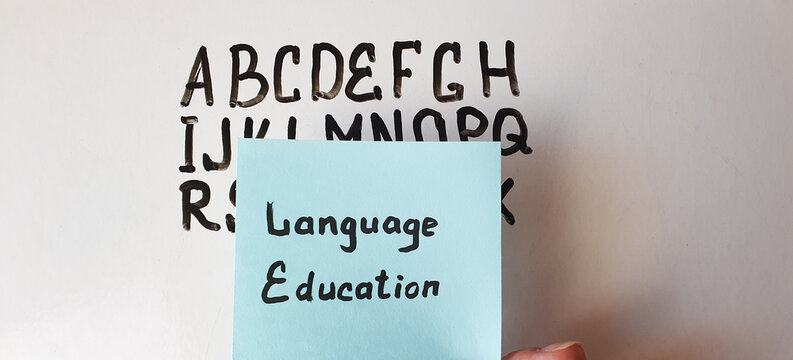 ABCDEFGH
IJKLMNOPQ
R
Language
Education